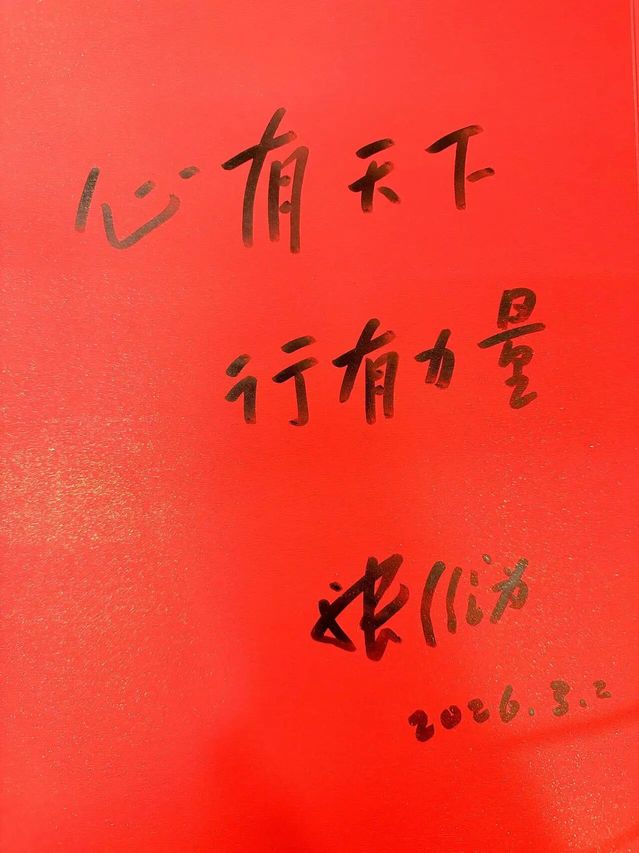 心有天下
行有力量
张
2026.3.2